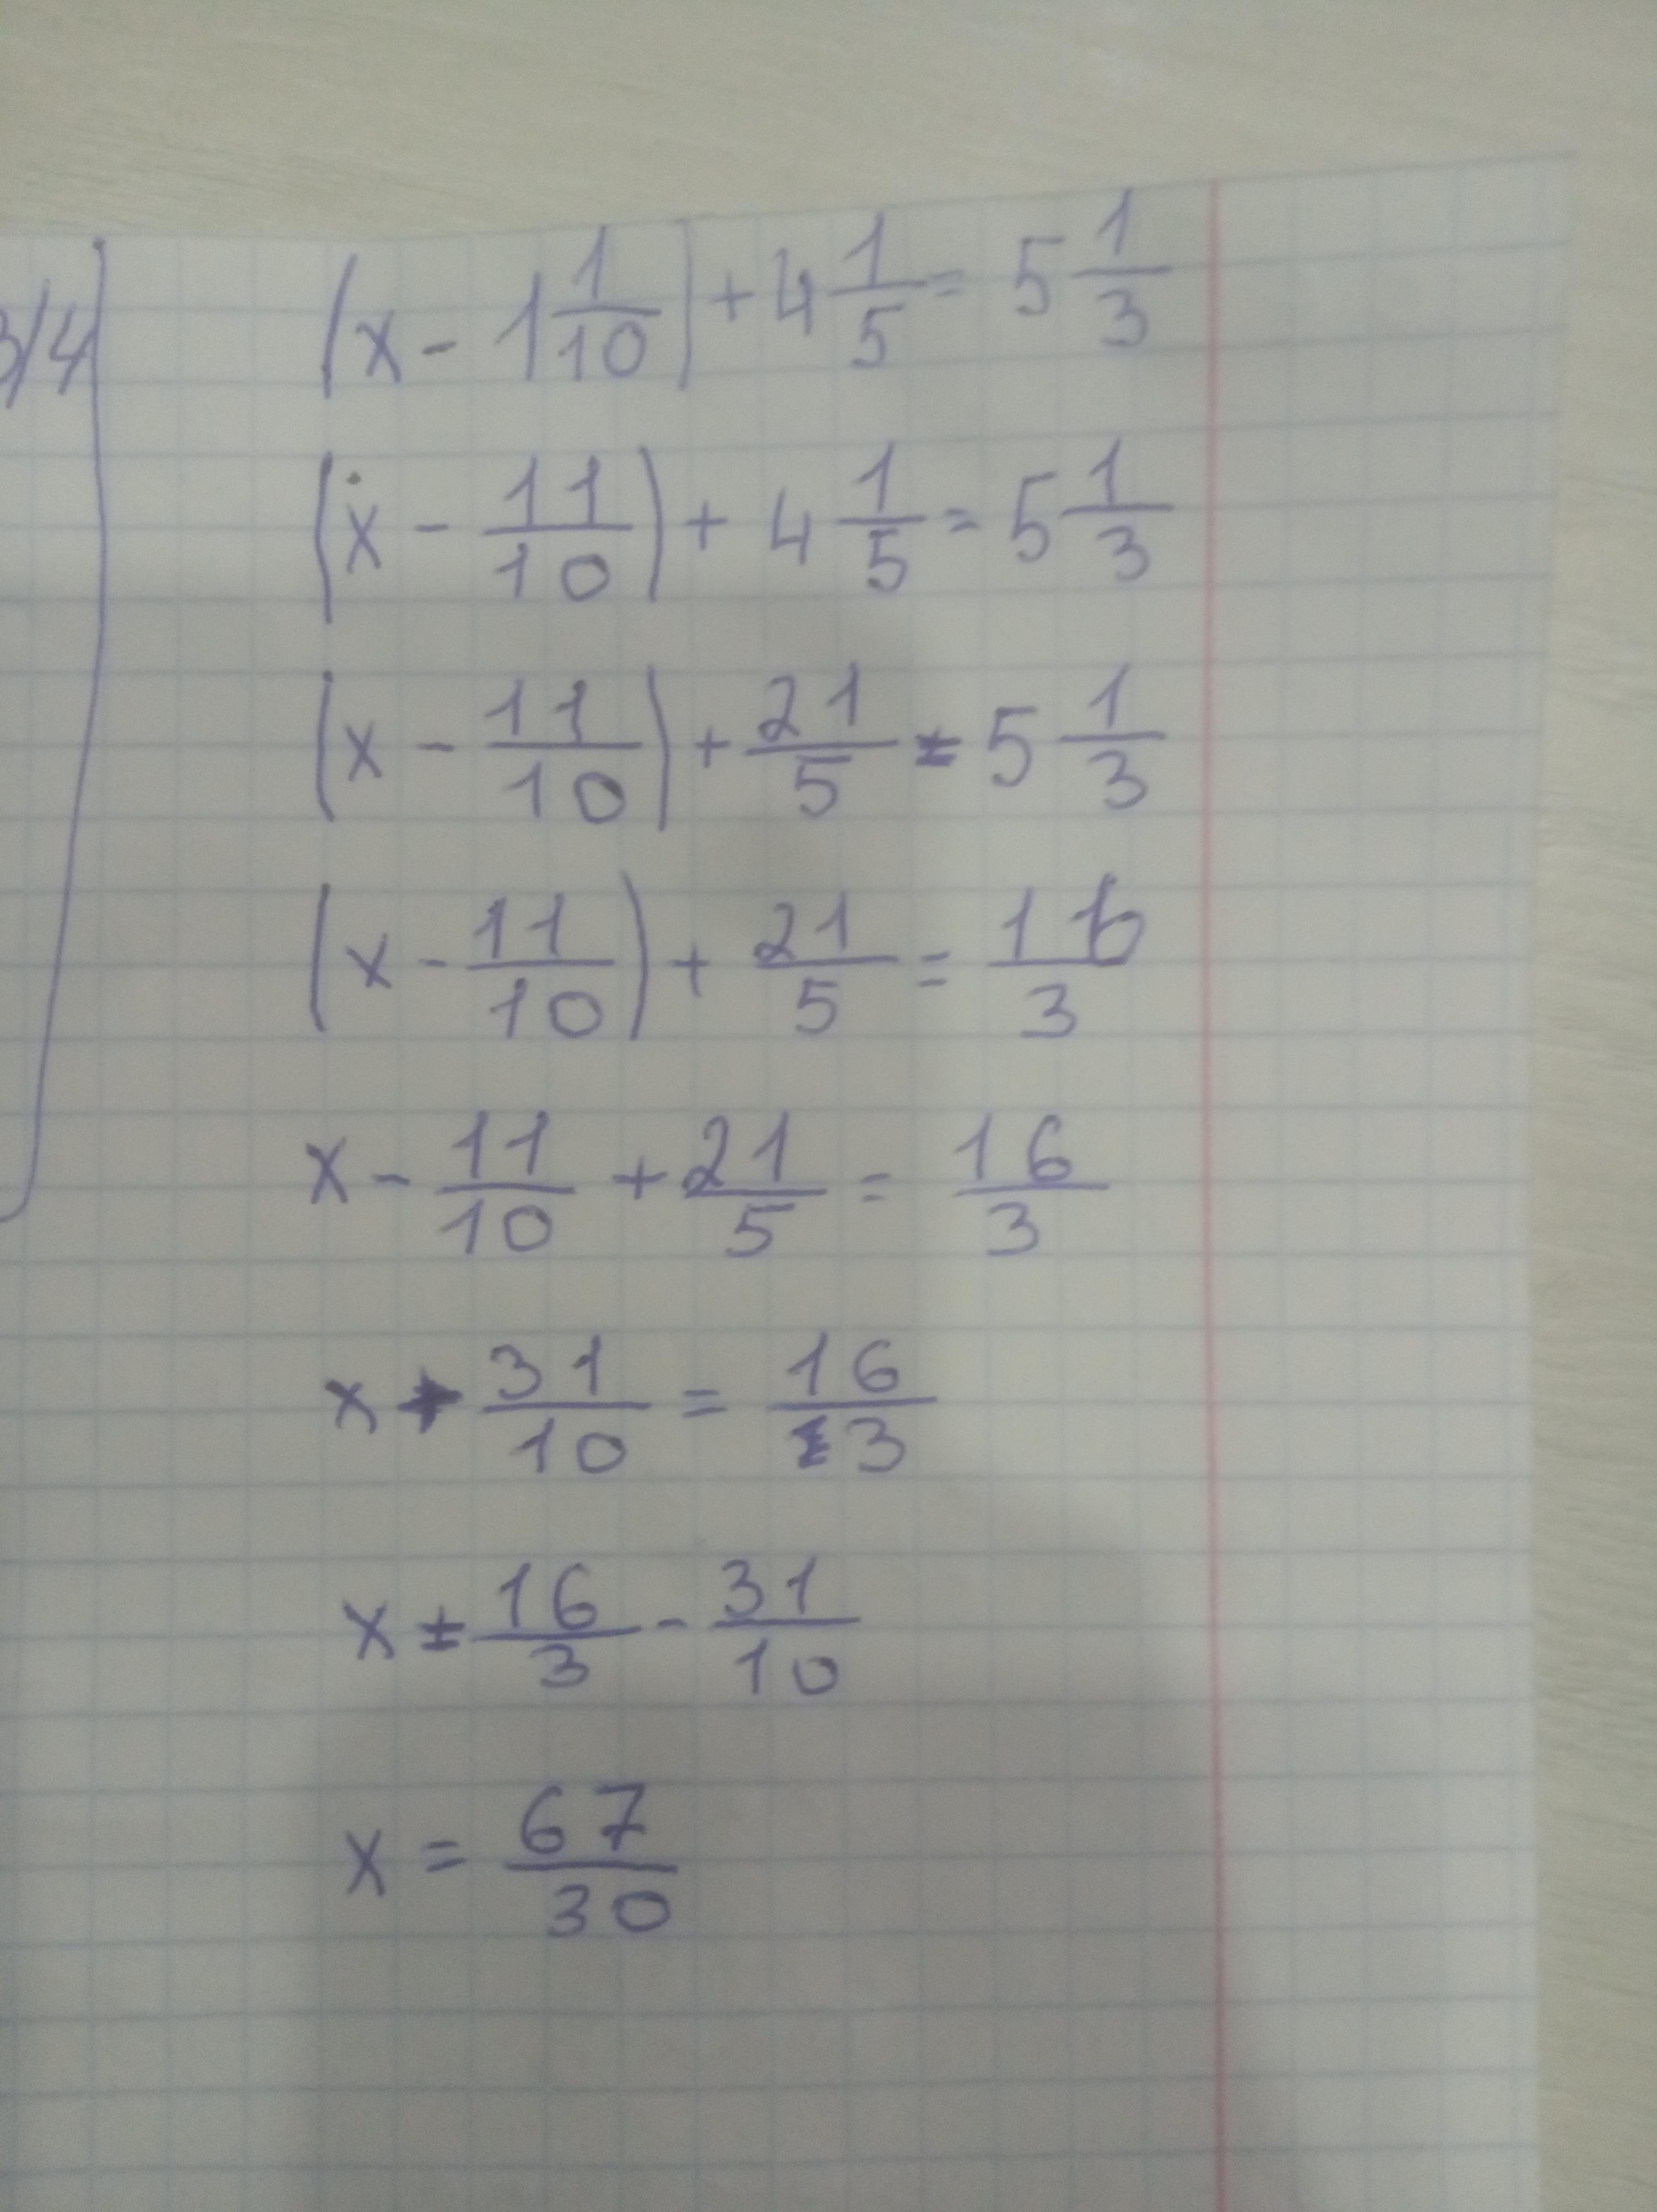 3/4
(x - 1 1/10) + 4 1/5 = 5 1/3
(x - 11/10) + 4 1/5 = 5 1/3
(x - 11/10) + 21/5 = 5 1/3
(x - 11/10) + 21/5 = 16/3
x - 11/10 + 21/5 = 16/3
x + 31/10 = 16/3
x = 16/3 - 31/10
x = 67/30